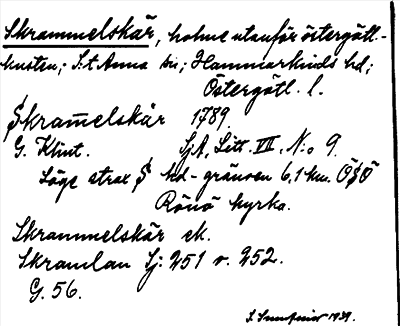 Skrammelskär, holme utanför östergötl.-
kusten; S:t Anna sn; Hammarkinds hd;
Östergötl. l.
Skram̅elskär 1789.
G. Klint. Sj.A. Litt. VII. N:o 9.
Läge strax S hd-gränsen 6,1 km. ÖSÖ
Rönö kyrka.
Skrammelskär ek.
Skramlan Sj: 251 v. 252.
G. 56.
1939.